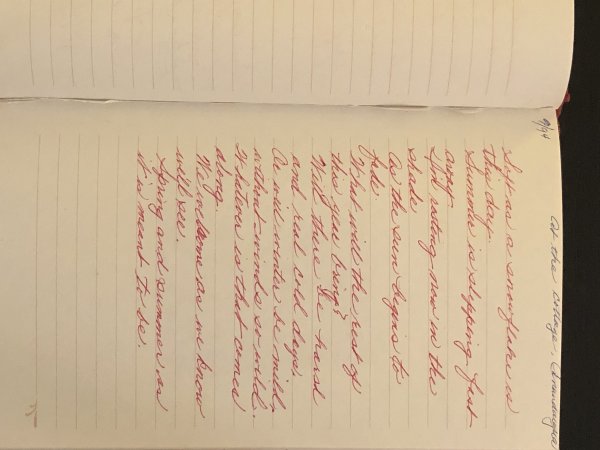 9/94 At the cottage.
Soft as a snowflake is
this day.
Summer is slipping fast
away
resting now in the
shade
As the sun begins to
fade
What will the rest of
this year bring?
Will there be harsh
and real cold days
Or will winter be mild
without winds so wild.
Whatever is that comes
along.
We welcome as we know
we'll see.
Spring and summer as
it is meant to be.